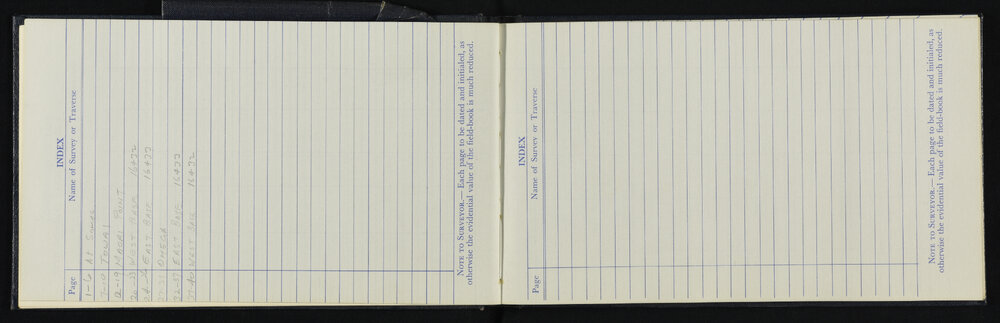 INDEX
Page Name of Survey or Traverse
1-6 At
TOWAI
12-19 MAORI POINT
WEST BASE 16472
EAST BASE
OMEGA
32-37 EAST BASE
WEST BASE 16472
NOTE TO SURVEYOR.— Each page to be dated and initialed, as
otherwise the evidential value of the field-book is much reduced.
INDEX
Page Name of Survey or Traverse
NOTE TO SURVEYOR.— Each page to be dated and initialed, as
otherwise the evidential value of the field-book is much reduced.